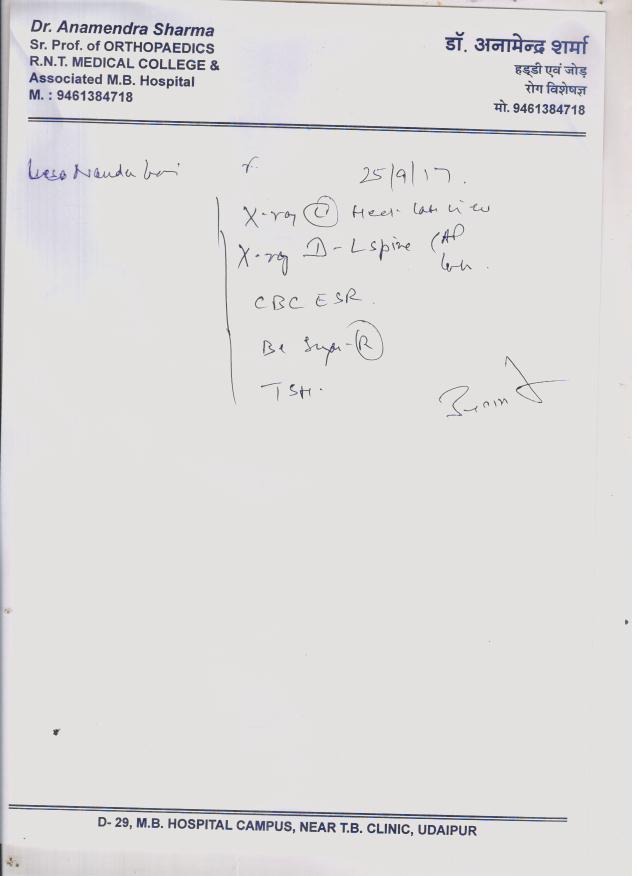 Dr. Anamendra Sharma
Sr. Prof. of ORTHOPAEDICS
R.N.T. MEDICAL COLLEGE &
Associated M.B. Hospital
M. : 9461384718
डॉ. अनामेन्द्र शर्मा
हड्डी एवं जोड़
रोग विशेषज्ञ
मो. 9461384718
25/9/17.
X-ray L Heel Lat view
X-ray D-L spine (AP
Lat.
CBC ESR.
R
TSH.
D- 29, M.B. HOSPITAL CAMPUS, NEAR T.B. CLINIC, UDAIPUR